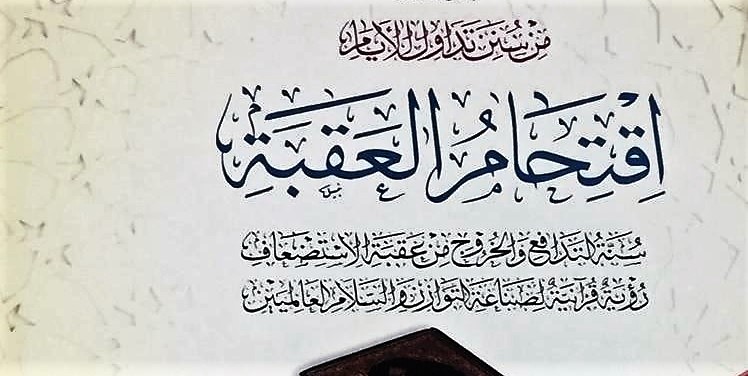 مِنْ سُنَنِ تَدَاوُلِ الأَيَّامِ
اِقْتِحَامُ العَقَبَةِ
سُنَّةُ التَّدَافُعِ وَالخُرُوجِ مِنْ عَقَبَةِ الاسْتِضْعَافِ
رُؤْيَةٌ قُرْآنِيَّةٌ لِصِنَاعَةِ التَّوَازُنِ وَالسَّلَامِ العَالَمِيَّيْنِ